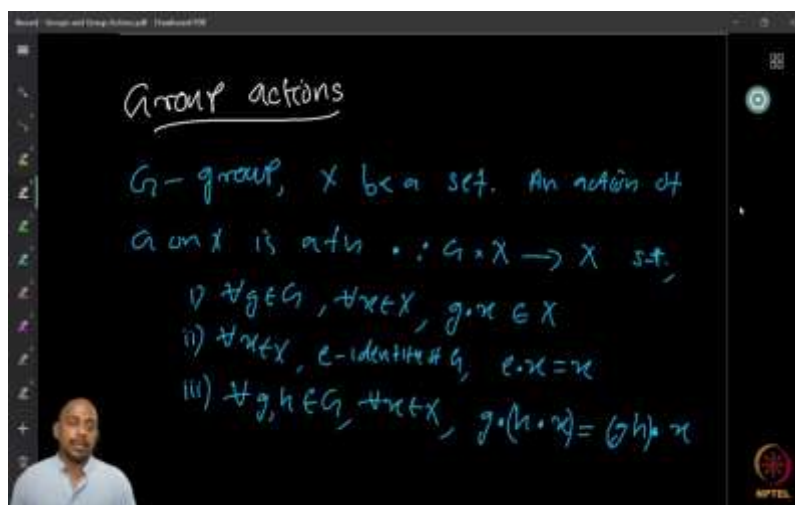 Group actions
G - group, X be a set. An action of
G on X is a fn • : G × X → X s.t,
i) ∀g∈G, ∀x∈X, g•x ∈ X
ii) ∀x∈X, e-identity of G, e•x = x
iii) ∀g,h∈G, ∀x∈X, g•(h•x) = (gh)•x
NPTEL